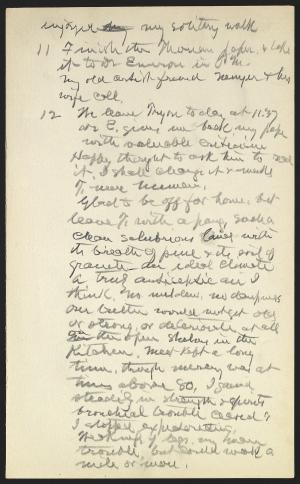 enjoyed my solitary walk
11 Finish the Thoreau paper, & take
it to Dr Emerson in P.M.
my old artist friend Sawyer & his
wife call.
12 We leave Tryon today at 11:37
Dr E. gives me back my paper
with valuable criticism
Happy thought to ask him to read
it. I shall change it & make
T. more human.
Glad to be off for home, but
leave T. with a pang. Such a
clean salubrious land with
the breath of pine & the soil of
granite. An ideal climate
a true antiseptic air I
think. No mildew, no dampness
our butter would not get old
or strong, or deteriorate at all
on the open shelves in the
Kitchen. Meat kept a long
time, though mercury was at
times above 80, I gained
steadily in strength & spirits
bronchial trouble ceased &
I stopped expectorating.
Weakness of legs, my main
trouble, but could walk a
mile or more.